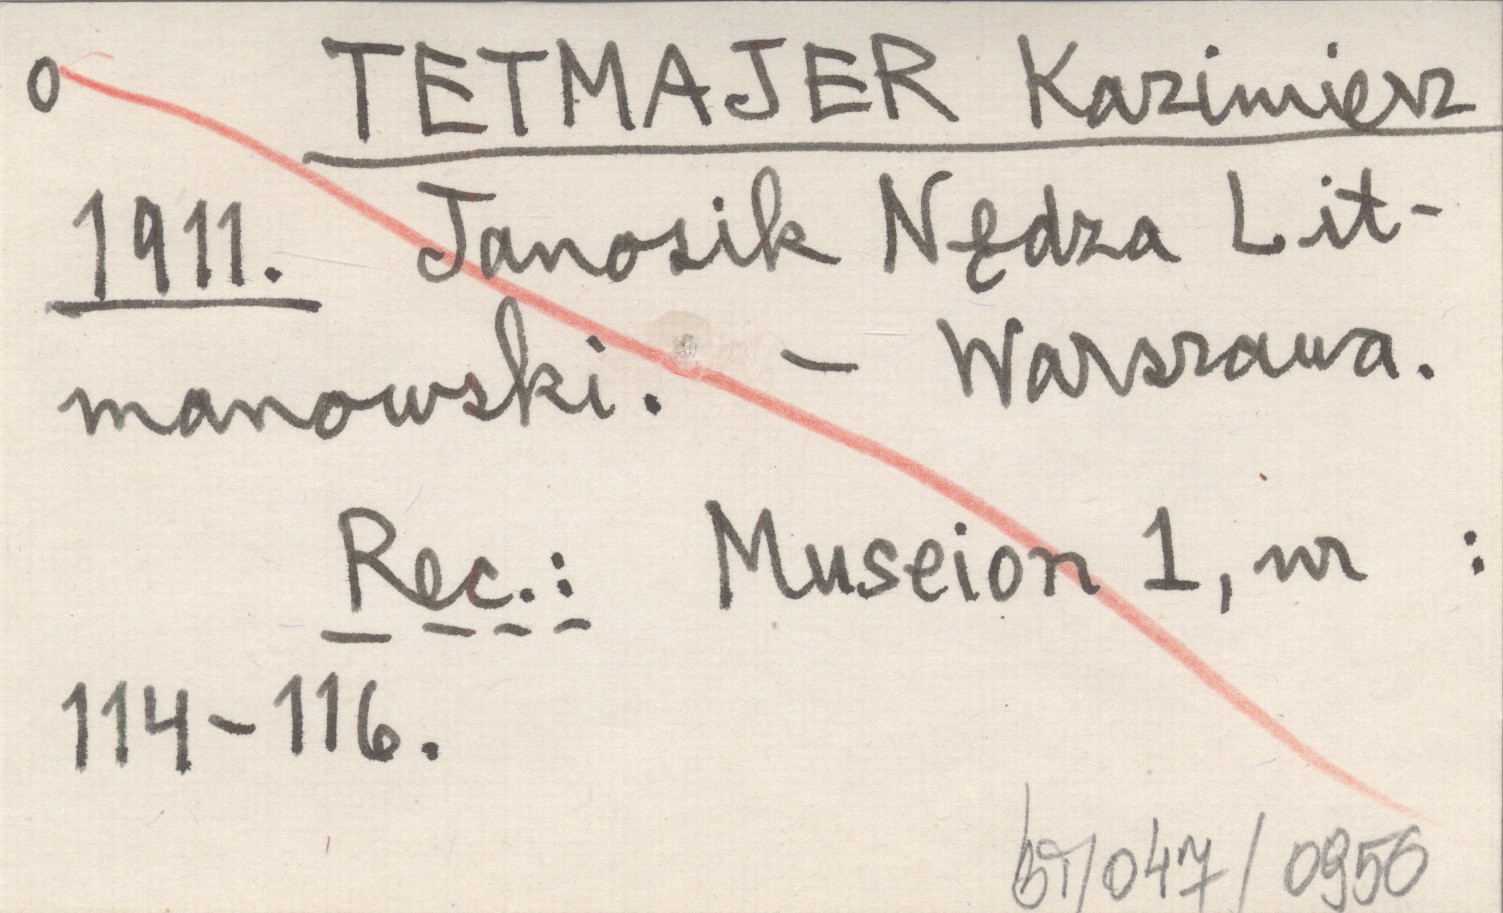 o TETMAJER Kazimierz
1911. Janosik Nędza Lit-
manowski. – Warszawa.
Rec.: Museion 1, nr :
114-116.
/047/0956